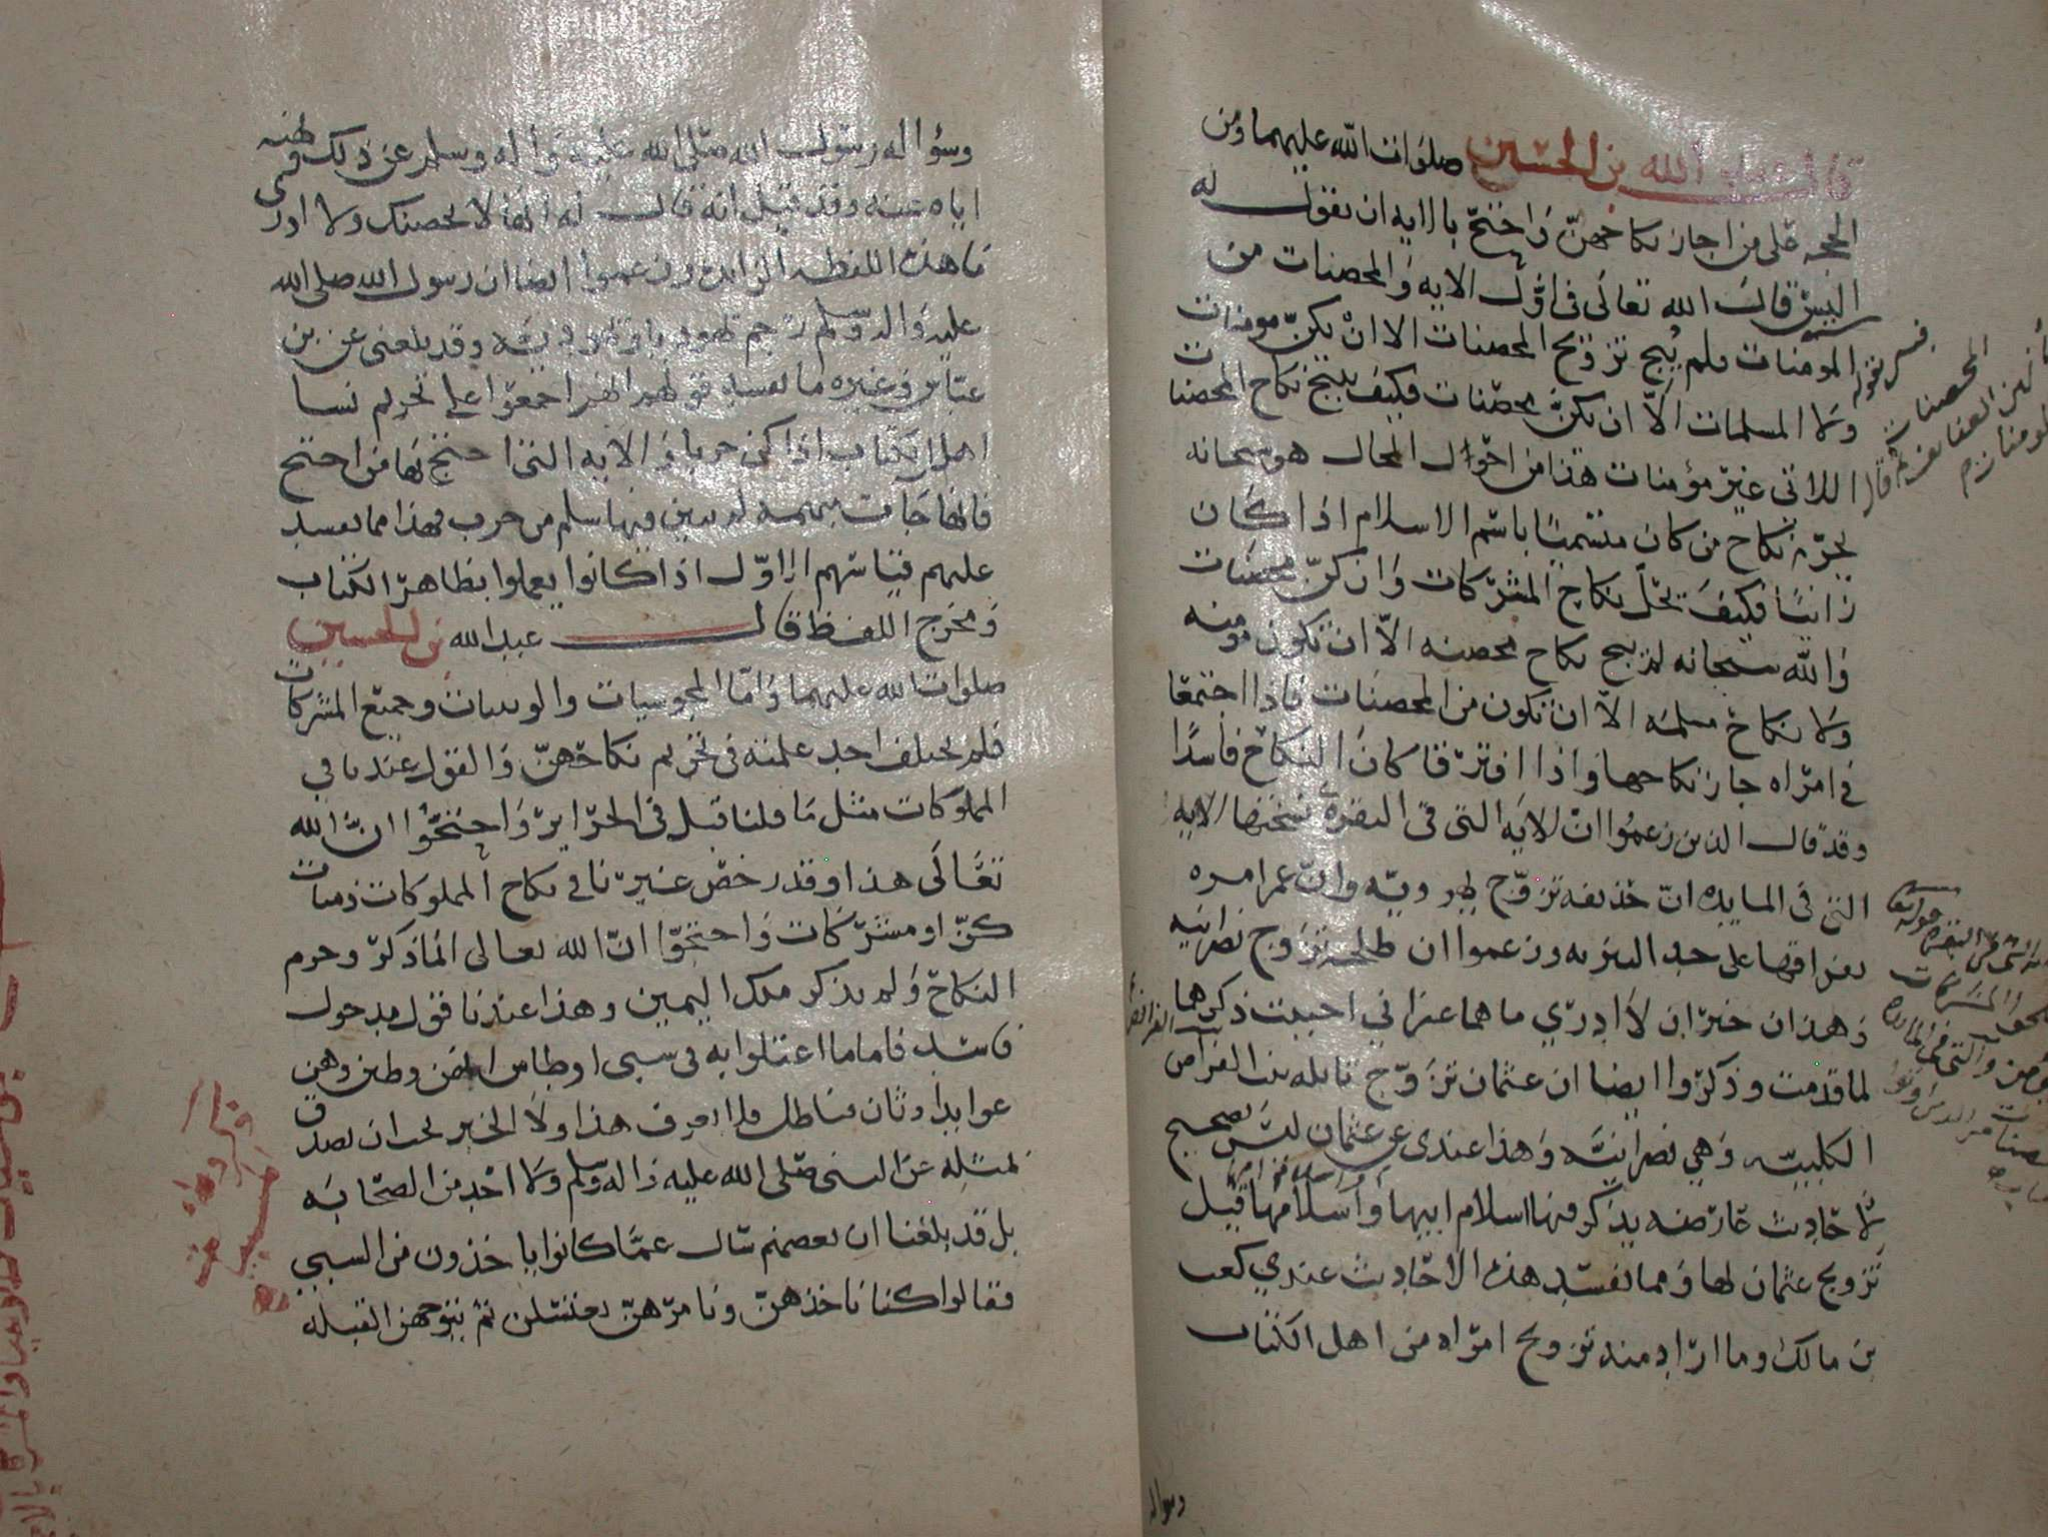 قال عبد الله بن الحسين صلوات الله عليهما ومن
الحجه على من اجاز نكاحهن واحتج بالايه ان نقول له
اليس قال الله تعالى في اول الايه والمحصنات من
المومنات فلم يبح تزويج المحصنات الا ان يكن مومنات
ولا المسلمات الا ان يكن محصنات فكيف يبيح نكاح المحصنات
اللاتي غير مؤمنات هذا من احوال المحال هو سبحانه
يحرم نكاح من كان متسميا باسم الاسلام اذا كان
زانيا فكيف يحل نكاح المشركات وان كن محصنات
والله سبحانه لم يبح نكاح محصنه الا ان تكون مومنه
ولا نكاح مسلمه الا ان تكون من المحصنات فاذا اجتمعا
في امراه جاز نكاحها واذا افترقا كان النكاح فاسدا
وقد قال الذين زعموا ان الايه التي في البقره نسختها الايه
التي في المايده ان حذيفه تزوج يهوديه وان عمر امره
بفراقها على حد التنزيه وزعموا ان طلحه تزوج نصرانيه
وهذان خبران لا ادري ما هما غير اني احببت ذكرهما
لما قدمت وذكروا ايضا ان عثمان تزوج نايله بنت الفرافص
الكلبيه وهي نصرانيه وهذا عندي عن عثمان ليس بصحيح
لاحاديث عارضه يذكر فيها اسلام ابيها واسلامها قبل
تزويج عثمان لها ومما يفسد هذه الاحاديث عندي كعب
بن مالك وما اراد منه تزويج امراه من اهل الكتاب
وسواله
وسؤاله رسول الله صلى الله عليه واله وسلم عن ذلك ونهيه
اياه عنه وقد قيل انه قال له انها لا تحصنك ولا ادري
ما هذه اللفظه الزايده وزعموا ايضا ان رسول الله صلى الله
عليه واله وسلم رجم يهوديا ويهوديه وقد بلغني عن بن
عباس وغيره ما يفسد قولهم انهم اجمعوا على تحريم نسا
اهل الكتاب اذا كن حربا والايه التي احتج بها من احتج
فانها جات مبهمه لم يبين فيها سلم من حرب فهذا مما يفسد
عليهم قياسهم الاول اذا كانوا يعملوا بظاهر الكتاب
ومخرج اللفظ قال عبد الله بن الحسين
صلوات الله عليهما واما المجوسيات والوثنيات وجميع المشركات
فلم يختلف احد علمته في تحريم نكاحهن والقول عندنا في
المملوكات مثل ما قلنا قبل في الحراير واحتجوا ان الله
تعالى هذا وقد رخص غيرنا في نكاح المملوكات ذميات
كن او مشركات واحتجوا ان الله تعالى انما ذكر وحرم
النكاح ولم يذكر ملك اليمين وهذا عندنا قول مدخول
فاسد فاما ما اعتلوا به في سبي اوطاس انهن وطين وهن
عوابد اوثان فباطل ولا يعرف هذا ولا الخبر يجب ان يصدق
بمثله عن النبي صلى الله عليه واله وسلم ولا احد من الصحابه
بل قد بلغنا ان بعضهم سال عما كانوا ياخذون من السبي
فقالوا كنا ناخذهن ونامرهن يغتسلن ثم نوجههن القبله